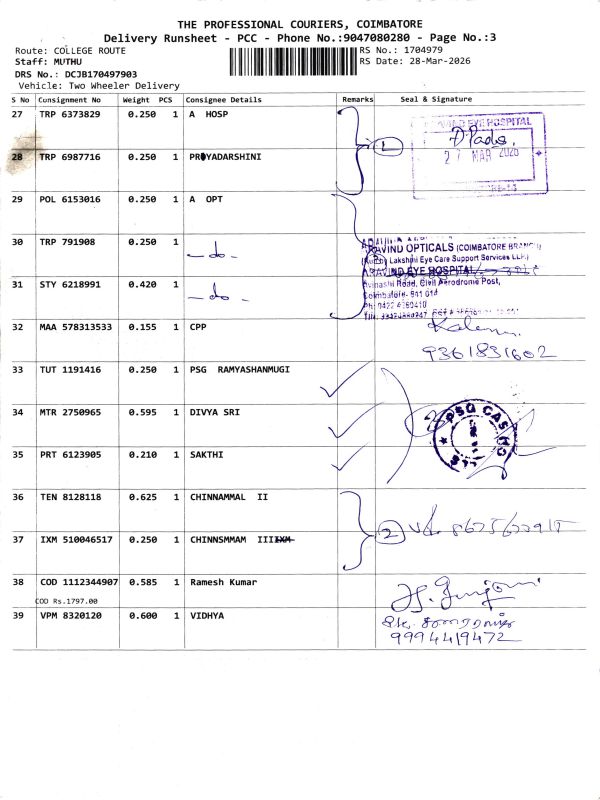 THE PROFESSIONAL COURIERS, COIMBATORE
Delivery Runsheet - PCC - Phone No.:9047080280 - Page No.:3
Route: COLLEGE ROUTE RS No.: 1704979
Staff: MUTHU RS Date: 28-Mar-2026
DRS No.: DCJB170497903
Vehicle: Two Wheeler Delivery
S No Consignment No Weight PCS Consignee Details Remarks Seal & Signature
27 TRP 6373829 0.250 1 A HOSP
EYE HOSPITAL
27 MAR 2026
28 TRP 6987716 0.250 1 PRIYADARSHINI
1
29 POL 6153016 0.250 1 A OPT
30 TRP 791908 0.250 1 -do-
ARAVIND OPTICALS (COIMBATORE BRANCH)
Lakshmi Eye Care Support Services LLP.)
ARAVIND EYE HOSPITAL
Avinashi Road, Civil Aerodrome Post,
Coimbatore- 641 014
31 STY 6218991 0.420 1 -do-
32 MAA 578313533 0.155 1 CPP
9361831602
33 TUT 1191416 0.250 1 PSG RAMYASHANMUGI
34 MTR 2750965 0.595 1 DIVYA SRI
PSG CAS
35 PRT 6123905 0.210 1 SAKTHI
36 TEN 8128118 0.625 1 CHINNAMMAL II
2
37 IXM 510046517 0.250 1 CHINNSMMAM III
38 COD 1112344907 0.585 1 Ramesh Kumar
COD Rs.1797.00
39 VPM 8320120 0.600 1 VIDHYA
9994419472